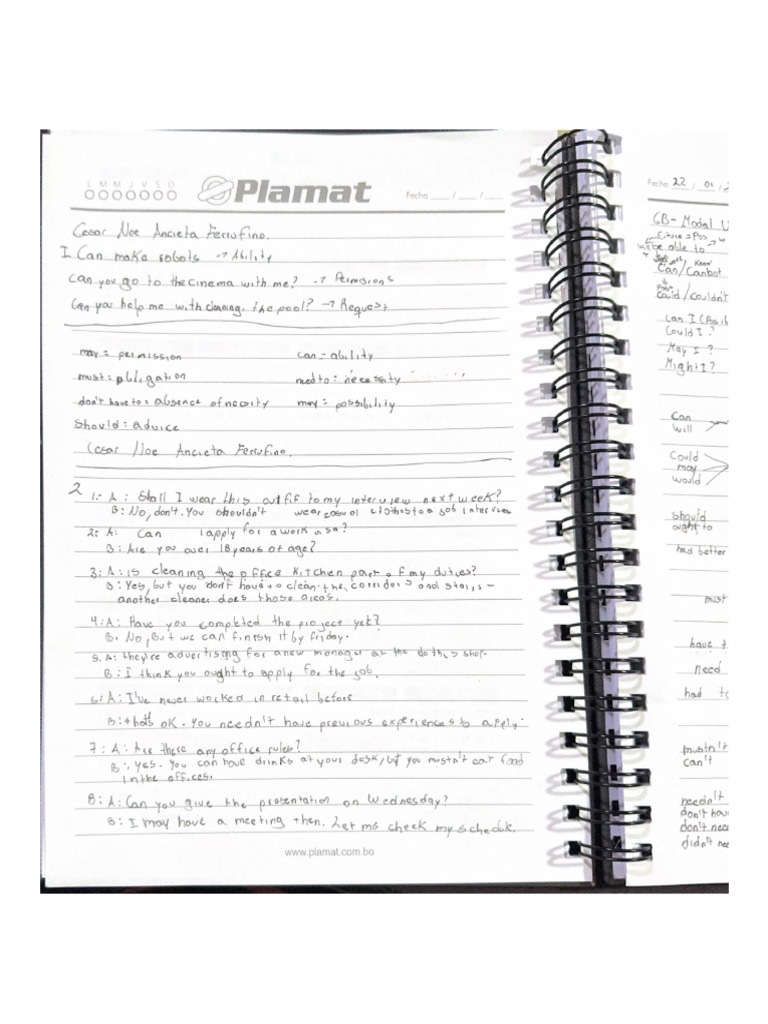 L M M J V S D
Plamat
Fecha __ / __ / __
Cesar Noe Ancieta Ferrufino.
I Can make robots → Ability
Can you go to the cinema with me? → Permissions
Can you help me with cleaning, the pool? → Request
may = permission can = ability
must = obligation need to = necessity
don't have to = absence of necsity may = possibility
Should = advice
Cesar Noe Ancieta Ferrufino.
2 1.- A: Shall I wear this outfit to my interview next week?
B: No, don't. You shouldn't wear casual clothes to a job interview
2: A: Can I apply for a work visa?
B: Are you over 18 years of age?
3: A: is cleaning the office kitchen part of my duties?
B: Yes, but you don't have to clean the corridors and stairs -
another cleaner does those areas.
4: A: Have you completed the project yet?
B. No, But we can finish it by friday.
5. A: they're advertising for a new manager at the clothes shop.
B: I think you ought to apply for the job.
6: A: I've never worked in retail before
B: OK. You needn't have previous experiences to apply.
7: A: Are there any office rules?
B: Yes. You can have drinks at your desk, but you mustn't eat food
in the offices.
8: A: Can you give the presentation on Wednesday?
B: I may have a meeting then. Let me check my schedule.
www.plamat.com.bo
Fecha 22 / 01 /
6B- Modal U
Future = Pos
will be able to → w
Can/Cannot
Could/couldn't
Can I (Possib
Could I ?
May I ?
Might I?
Can
will
Could
may
would
should
ought to
had better
must
have t
need
had to
mustn't
can't
needn't
don't hav
don't nee
didn't nee